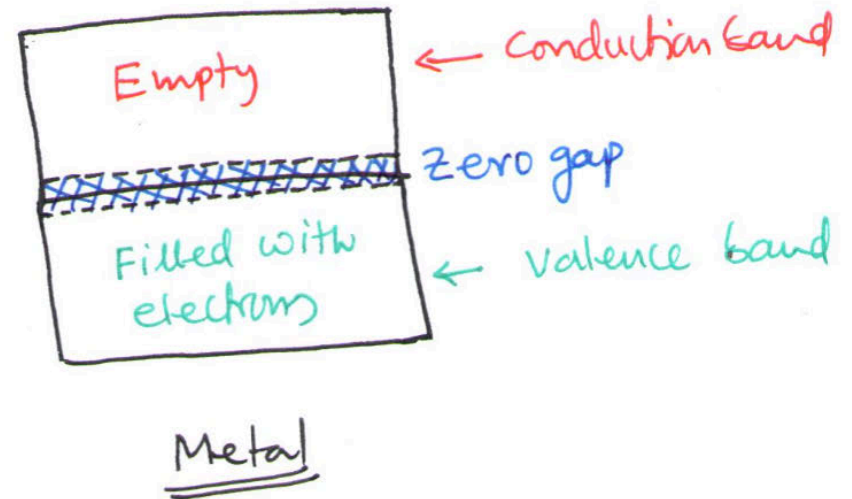 Empty
← Conduction band
Zero gap
Filled with
electrons
← Valence band
Metal